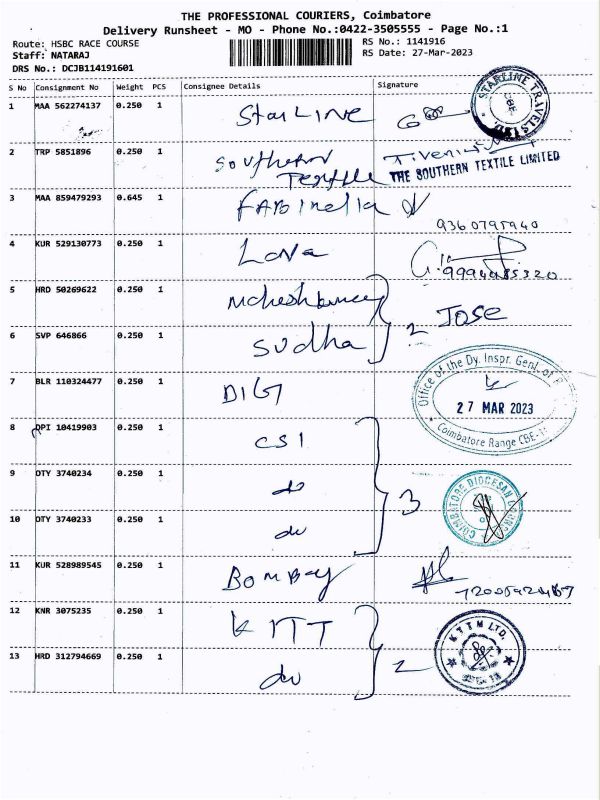 THE PROFESSIONAL COURIERS, Coimbatore
Delivery Runsheet - MO - Phone No.:0422-3505555 - Page No.:1
Route: HSBC RACE COURSE
Staff: NATARAJ
DRS No.: DCJB114191601
RS No.: 1141916
RS Date: 27-Mar-2023
S No Consignment No Weight PCS Consignee Details Signature
1 MAA 562274137 0.250 1 StarLINE
STARLINE TRAVELS CBE
2 TRP 5851896 0.250 1 Southern Textile
THE SOUTHERN TEXTILE LIMITED
3 MAA 859479293 0.645 1 FABinella
9360795940
4 KUR 529130773 0.250 1 Lova
9994985320
5 HRD 50269622 0.250 1
6 SVP 646866 0.250 1 Sudha
2 JOSE
7 BLR 110324477 0.250 1 DIG
Office of the Dy. Inspr. Genl. of
27 MAR 2023
Coimbatore Range CBE-18
8 DPI 10419903 0.250 1 CSI
9 OTY 3740234 0.250 1 do
10 OTY 3740233 0.250 1 do
3
COIMBATORE DIOCESAN
11 KUR 528989545 0.250 1 Bombay
12 KNR 3075235 0.250 1 KITT
13 HRD 312794669 0.250 1 do
2
K T T M LTD.